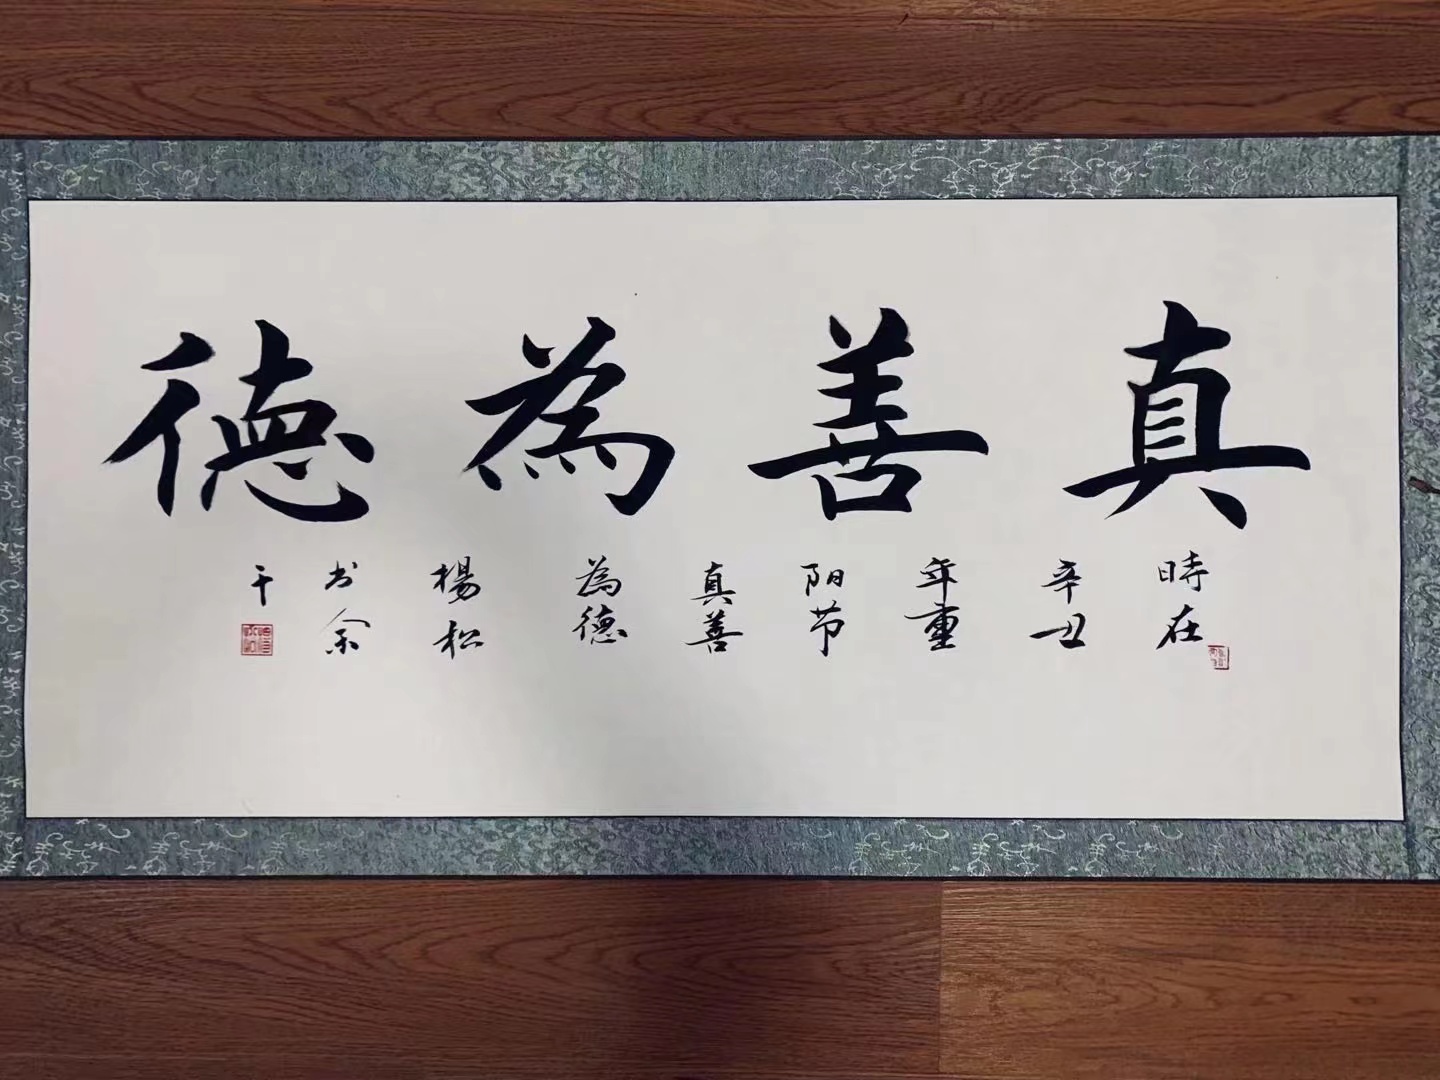 真善為德
時在
辛丑
年重
阳节
真善
為德
楊松
书余
干